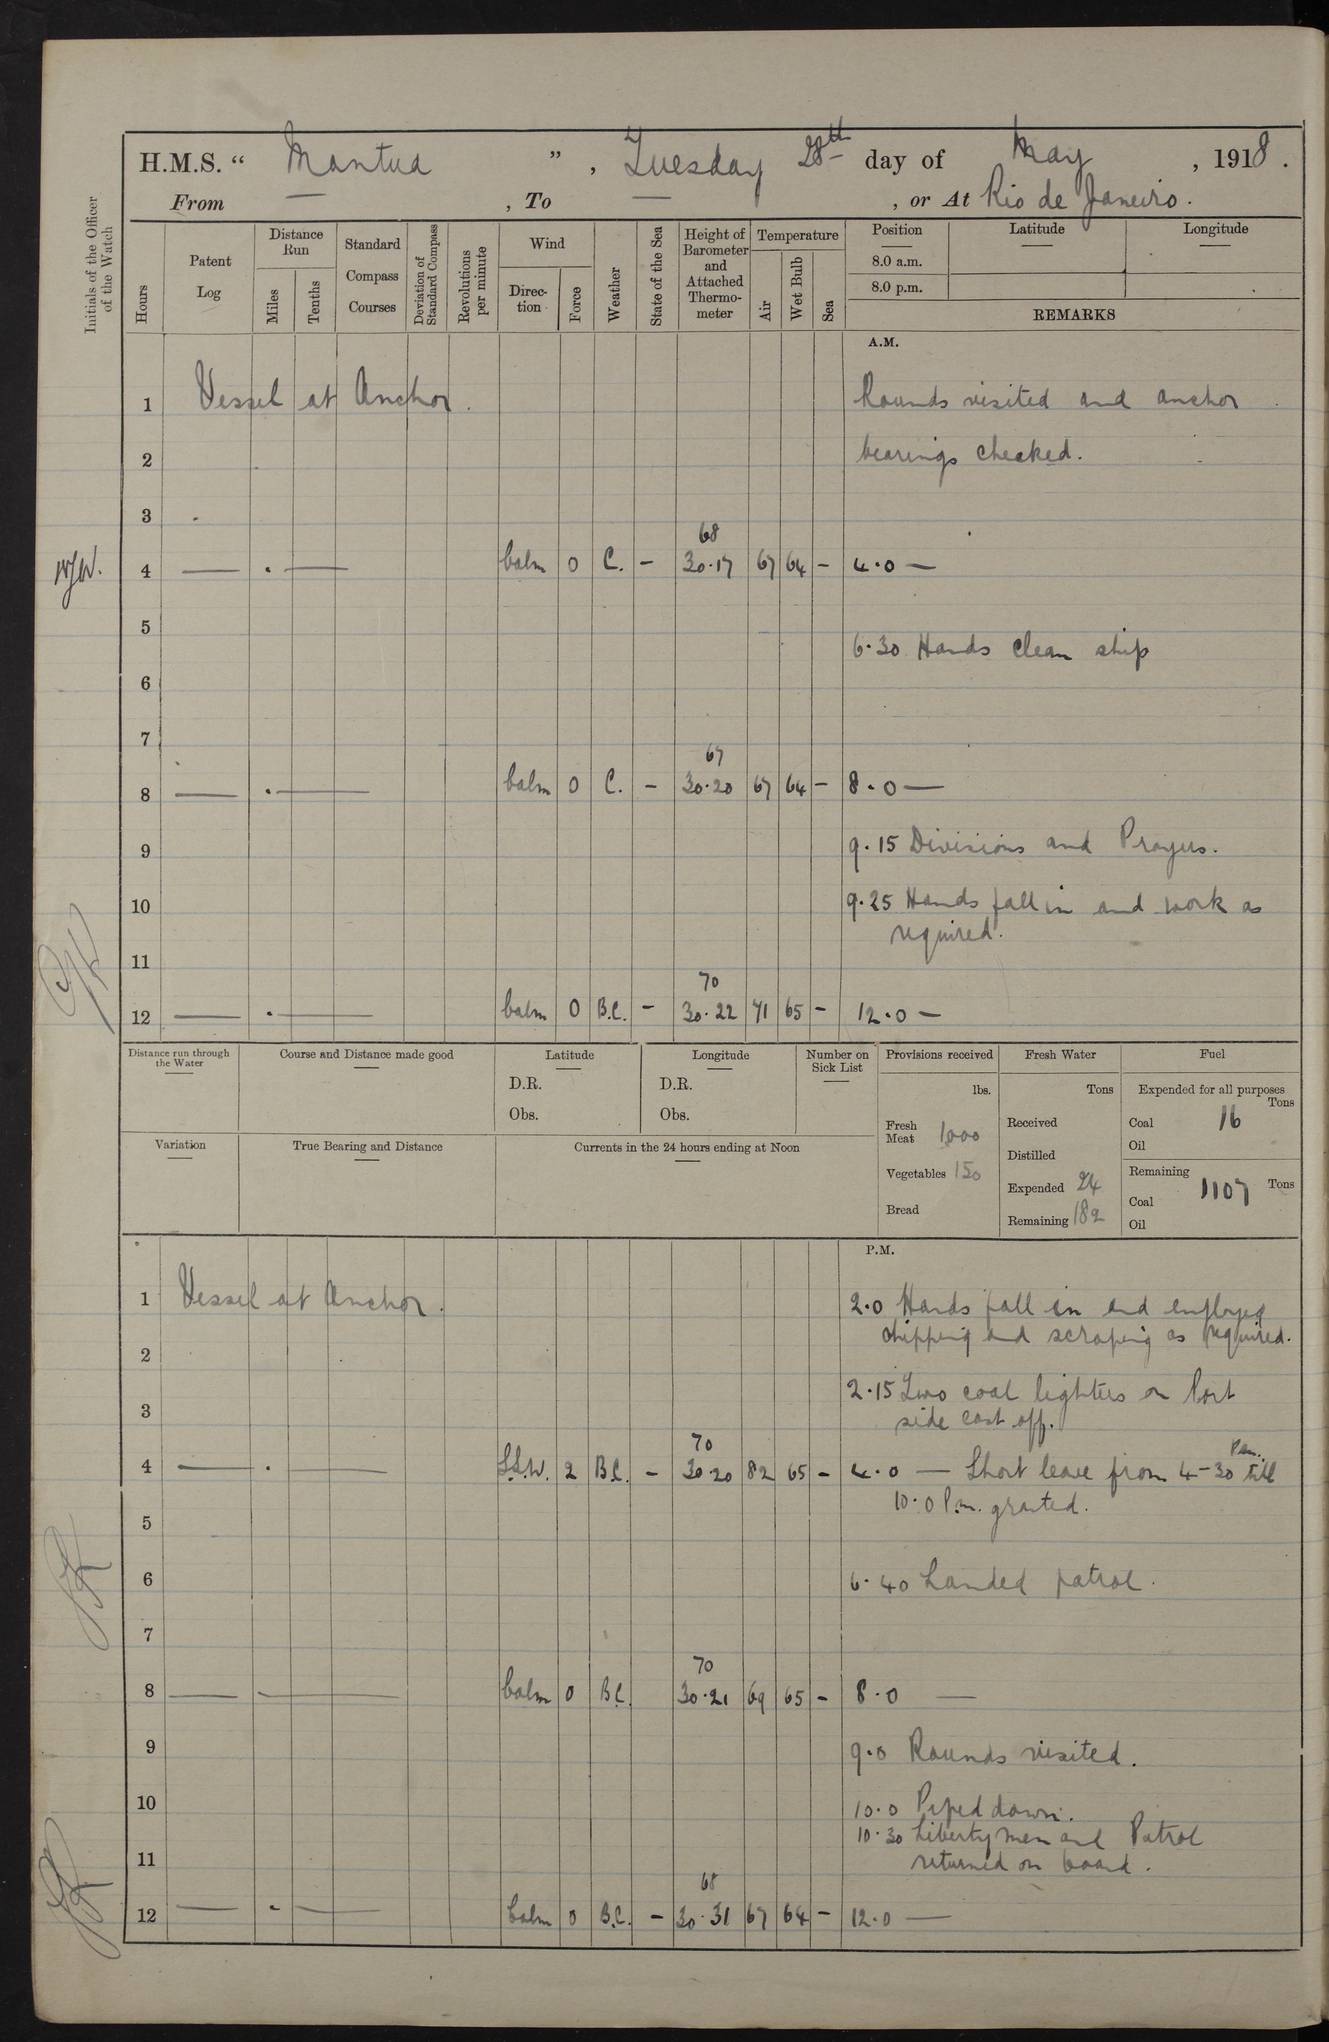 H.M.S. “ Mantua ” , Tuesday 28th day of May , 1918 .
From — , To — , or At Rio de Janeiro .
Initials of the Officer of the Watch
Hours
Patent Log
Distance Run
Miles
Tenths
Standard Compass Courses
Deviation of Standard Compass
Revolutions per minute
Wind
Direc- tion
Force
Weather
State of the Sea
Height of Barometer and Attached Thermo- meter
Temperature
Air
Wet Bulb
Sea
Position
8.0 a.m.
8.0 p.m.
Latitude
Longitude
REMARKS
A.M.
1 Vessel at Anchor . Rounds visited and anchor
2 bearings checked.
3
68
4 — . — Calm 0 C. – 30.17 67 64 – 4.0 —
5
6.30 Hands clean ship
6
7
67
8 — . — Calm 0 C. – 30.20 67 64 – 8.0 —
9 9.15 Divisions and Prayers.
10 9.25 Hands fall in and work as
required.
11
70
12 — . — Calm 0 B.C. – 30.22 71 65 – 12.0 —
Distance run through the Water
Course and Distance made good
Latitude
D.R.
Obs.
Longitude
D.R.
Obs.
Number on Sick List
Variation
True Bearing and Distance
Currents in the 24 hours ending at Noon
Provisions received
lbs.
Fresh Meat 1000
Vegetables 150
Bread
Fresh Water
Tons
Received
Distilled
Expended 24
Remaining 182
Fuel
Expended for all purposes
Tons
Coal 16
Oil
Remaining
Tons
Coal 1107
Oil
P.M.
1 Vessel at Anchor . 2.0 Hands fall in and employed
chipping and scraping as required.
2
2.15 Two coal lighters on Port
3 side cast off.
70
4 — . — S.S.W. 2 B.C. – 30.20 82 65 – 4.0 — Short leave from 4-30 P.m. till
10.0 P.m. granted.
5
6 6.40 Landed patrol.
7
70
8 — — Calm 0 B.C. 30.21 69 65 – 8.0 —
9 9.0 Rounds visited.
10 10.0 Piped down.
10.30 Liberty men and Patrol
11 returned on board.
68
12 — - — Calm 0 B.C. – 30.31 67 64 – 12.0 —